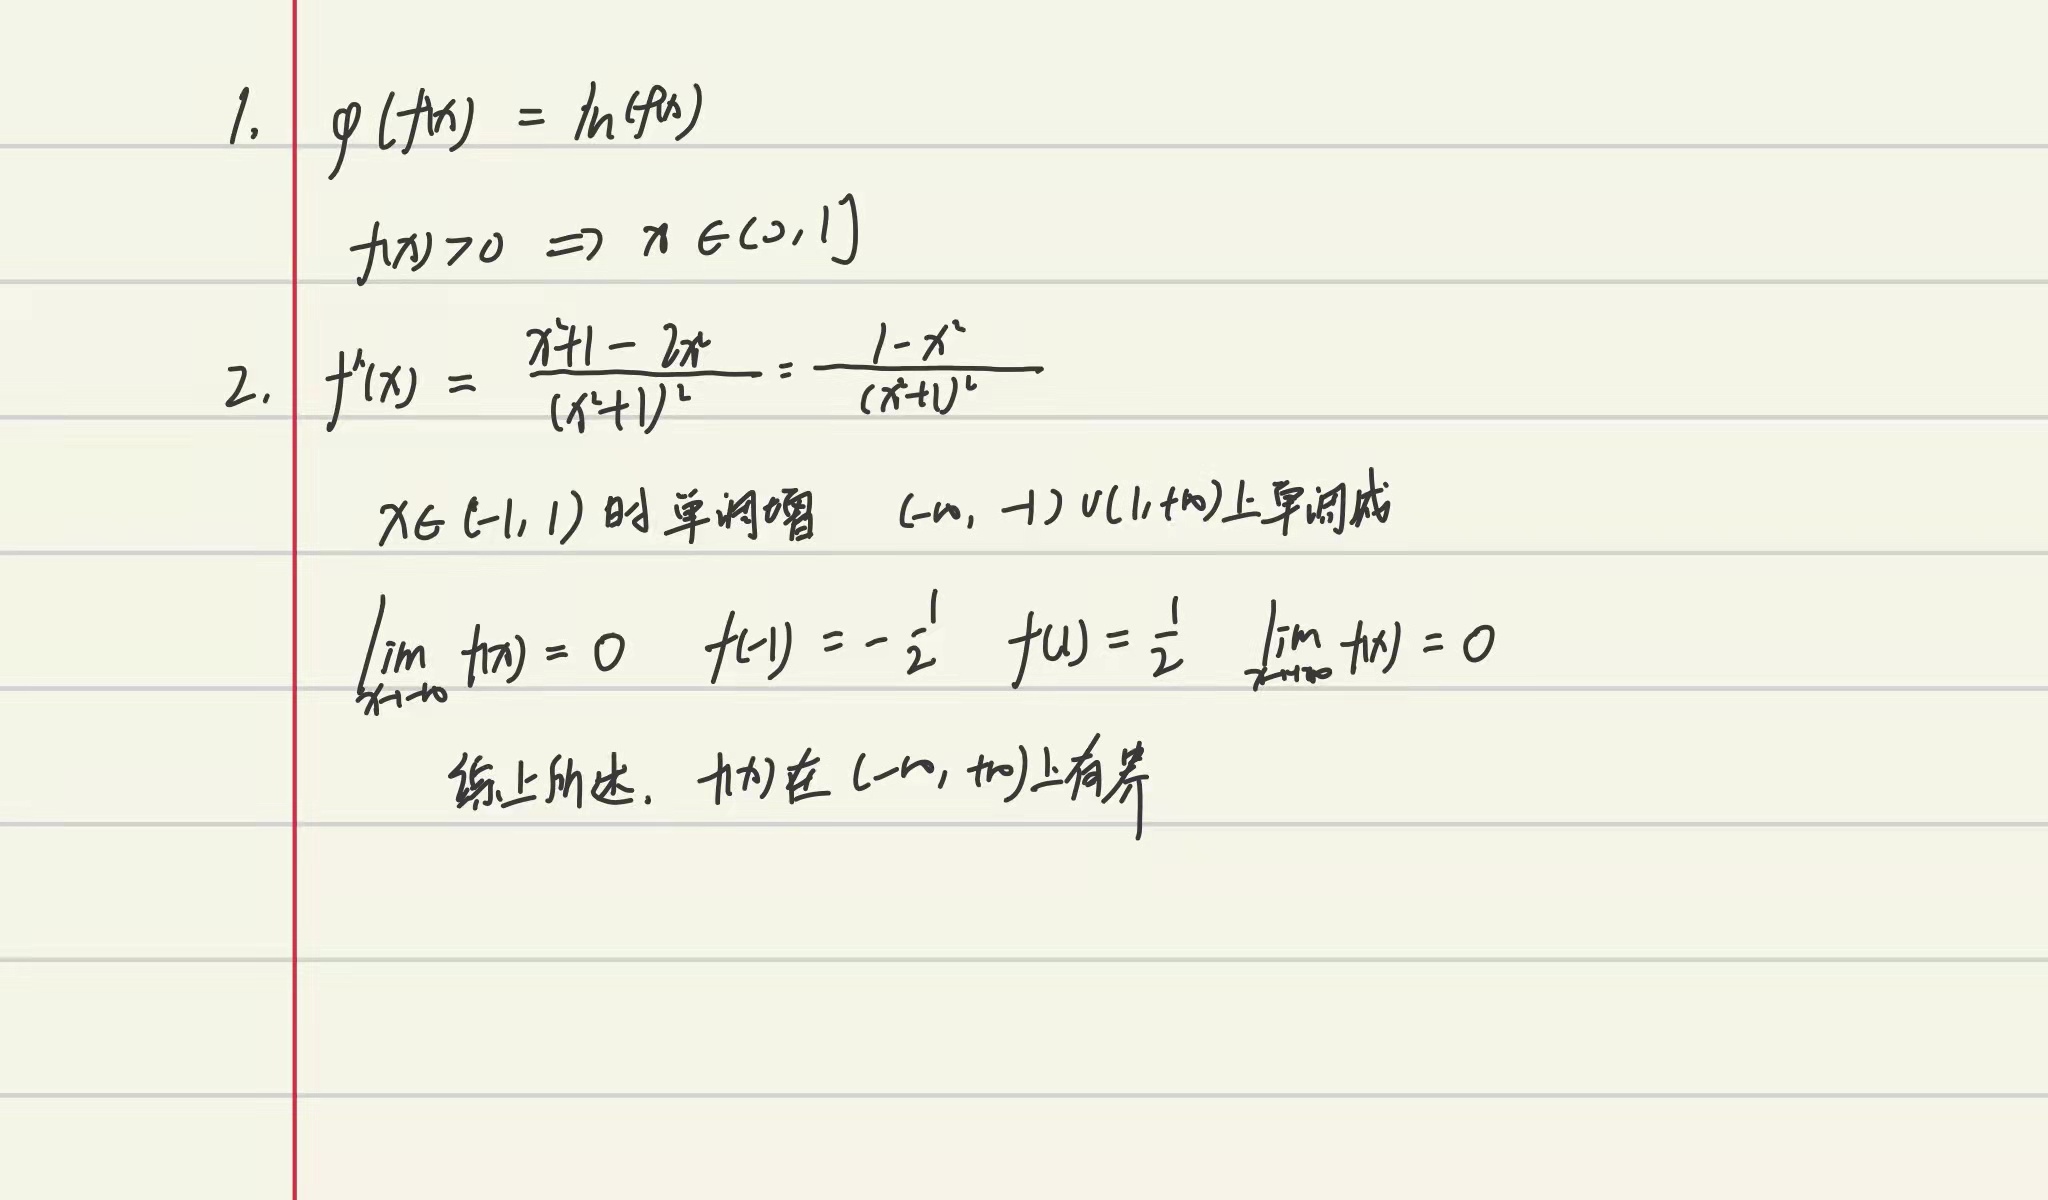 1. φ(f(x)) = ln(f(x))
f(x)>0 ⇒ x∈(0,1]
2. f'(x) = \frac{x²+1-2x²}{(x²+1)²} = \frac{1-x²}{(x²+1)²}
x∈(-1,1)时单调增 (-∞,-1)∪(1,+∞)上单调减
\lim_{x→-∞} f(x) = 0 f(-1) = -\frac{1}{2} f(1) = \frac{1}{2} \lim_{x→+∞} f(x) = 0
综上所述. f(x)在(-∞,+∞)上有界